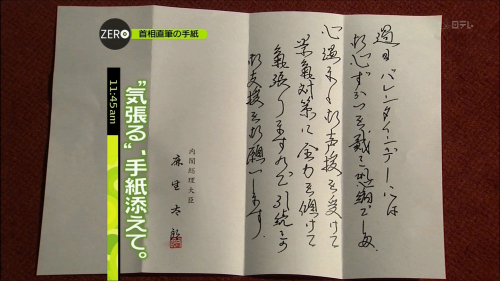 ZERO
首相直筆の手紙
日テレ
11:45am
"気張る"、手紙添えて。
過日 バレンタインデーには
御心づかいを戴き恐縮でした。
心温まる御声援を受けて
景氣対策に全力を傾けて
氣張りますので引続き
御支援を御願いします。
内閣総理大臣
麻生太郎